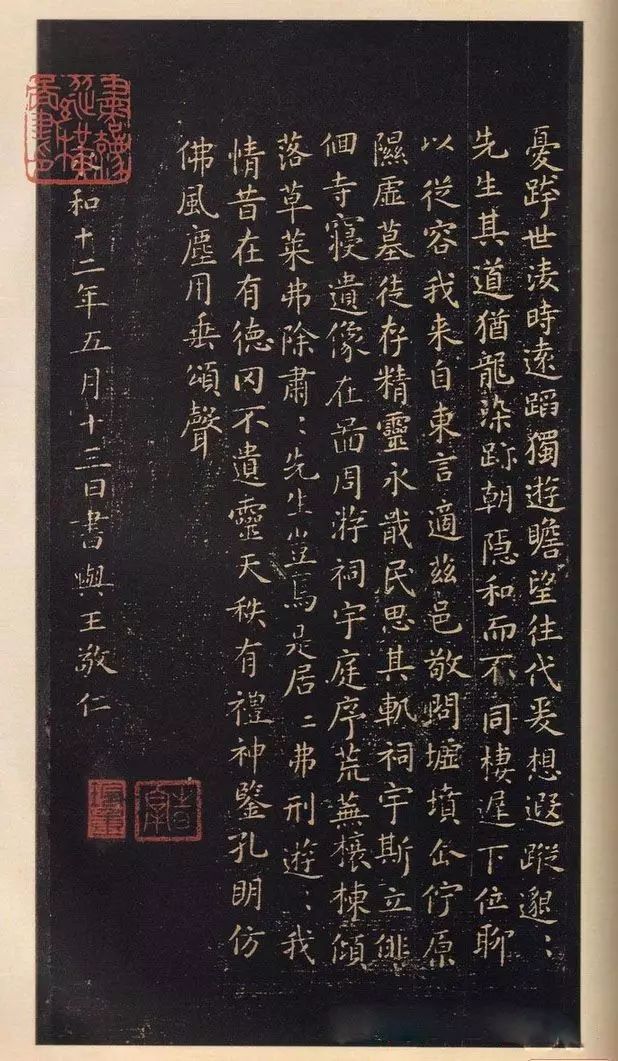 憂跨世淩時遠蹈獨遊瞻望往代爰想遐蹤邈：
先生其道猶龍染跡朝隱和而不同棲遲下位聊
以從容我来自東言適茲邑敬問墟墳企佇原
隰虛墓徒存精靈永戢民思其軌祠宇斯立俳
佪寺寑遺像在啚周游祠宇庭序荒蕪榱棟傾
落草萊弗除肅：先生豈焉是居二弗刑遊：我
情昔在有德罔不遺靈天秩有禮神鑒孔明仿
佛風塵用垂頌聲
和十二年五月十三日書與王敬仁